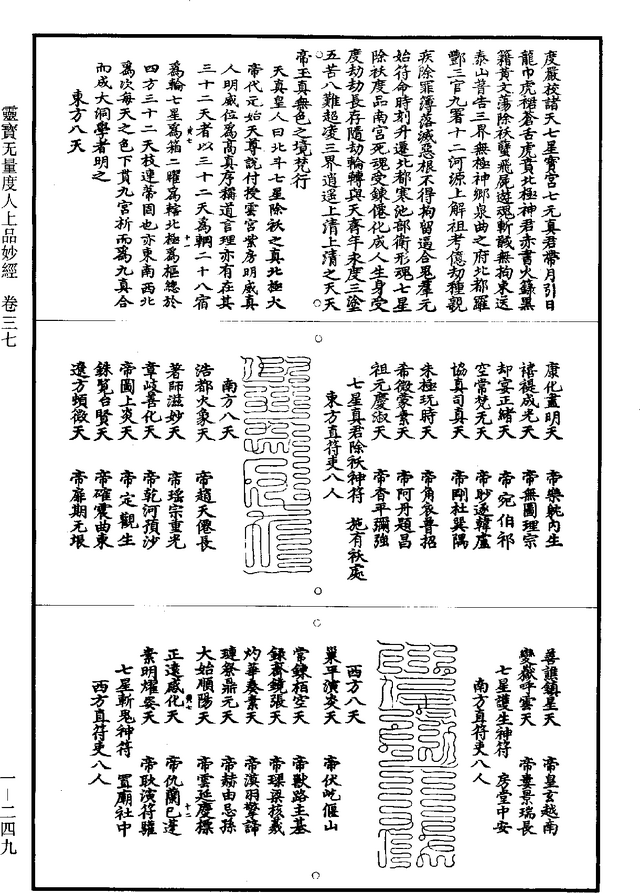 靈寶无量度人上品妙經 卷三七
一－二四九
度嚴校諸天七星寶宮七元真君帶月引日
龍巾虎裙蒼舌虎賁北極神君赤書火錄黑
籍黃文蕩除祅孽飛屍遊魂斬馘無拘東送
泰山普告三界無極神鄉泉曲之府北都羅
酆三官九署十二河源上解祖考億劫種親
疾除罪簿落滅惡根不得拘留逼合鬼羣元
始符命時刻升遷北都寒池部衛形魂七星
除祅度品南宮死魂受鍊僊化成人生身受
度劫劫長存隨劫輪轉與天齊年永度三塗
五苦八難超凌三界逍遥上清上清之天天
帝玉真無色之境梵行
天真皇人曰北斗七星除祅之真北極大
帝代元始天尊說付授雲宮黨房明威真
人明威位爲高真序稱道言理亦有在其
三十二天者以三十二天爲輞二十八宿
爲輪七星爲箱二曜爲轄北極爲樞總於
四方三十二天枝連蔕固也亦東南西北
爲次每天之色下貫九宮析而爲九真合
而成大洞學者明之
東方八天
康化晝明天 帝樂毓內生
禇禔成光天 帝無圖理宗
却宴正緒天 帝宛伯祁
空常梵元天 帝眇逐韓盧
協真司真天 帝剛杜巽隅
朱極玩時天 帝角衮普招
希微蒙素天 帝阿丹題昌
祖元慶淑天 帝香平彌強
七星真君除祅神符 施有祅處
東方直符吏八人
南方八天
浩都火象天 帝趙天僊長
著師滋妙天 帝瑶宗重光
章岐善化天 帝乾河預沙
帝圖上炎天 帝定觀生
銖覽台賢天 帝確震曲東
還方頻徵天 帝扉期无垠
善譙鎮星天 帝皇玄越南
變嶽呼雲天 帝婁景瑞長
七星護生神符 房堂中安
南方直符吏八人
西方八天
巢平演炎天 帝伏屹偃山
常鍊栢空天 帝獸路主基
録齋鏡張天 帝璨梁核羲
灼華奏素天 帝滇羽擎諦
璉祭鼎元天 帝赫由忌孫
大始順陽天 帝雲延慶標
正遠威化天 帝仇蘭巴蓬
素明燿姿天 帝耿演符驩
七星斬鬼神符 置廟社中
西方直符吏八人